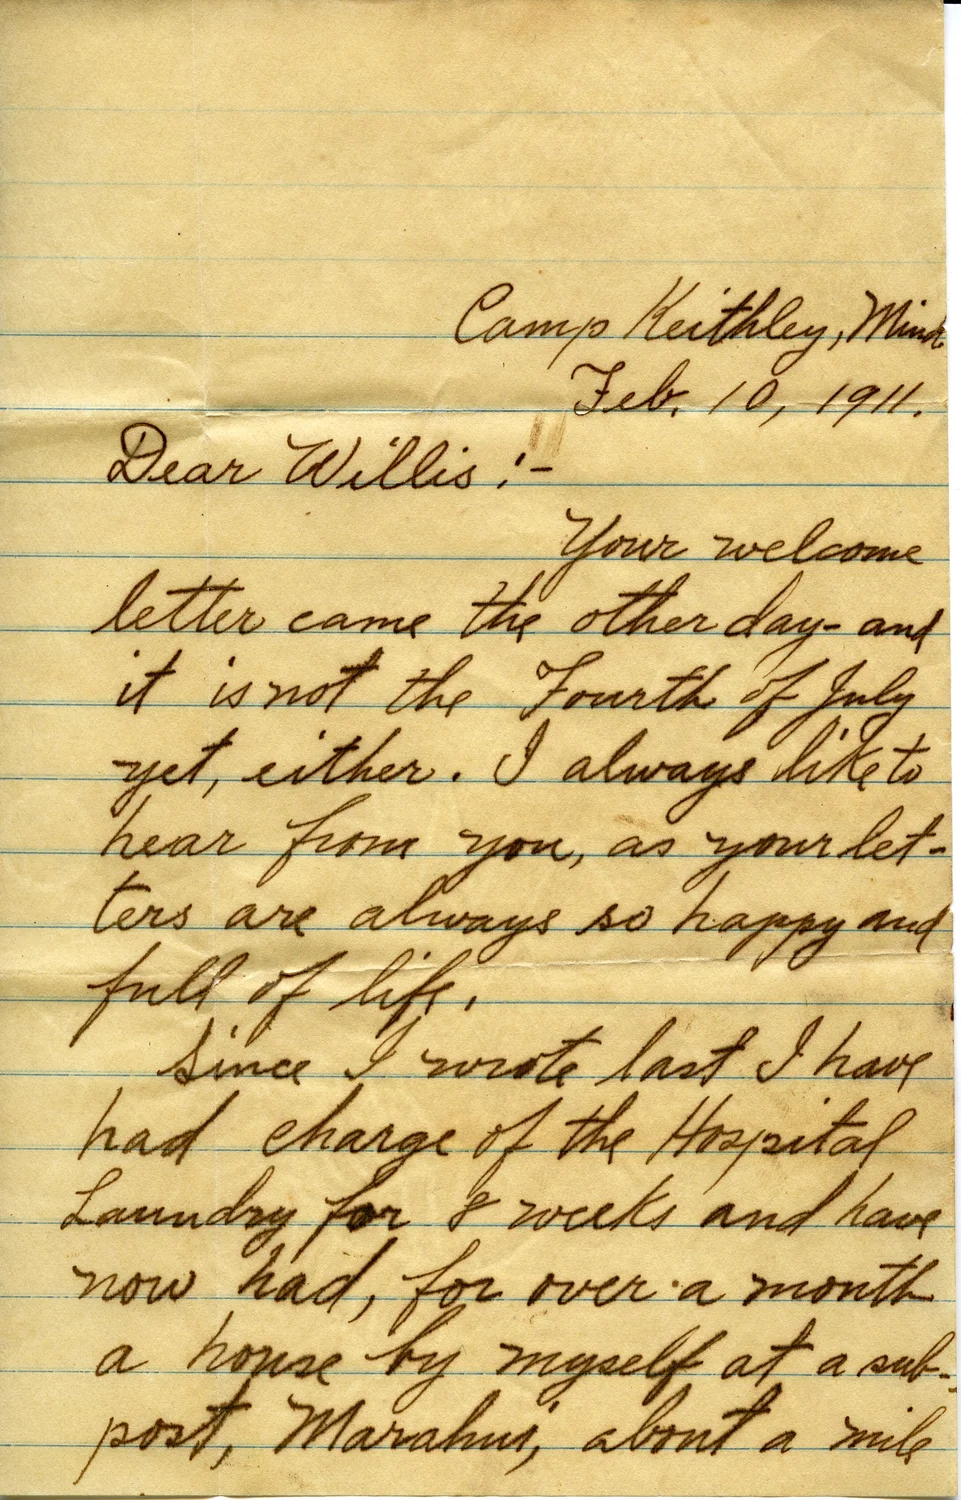 Camp Keithley, Mind.
Feb. 10, 1911.
Dear Willis :-
Your welcome
letter came the other day- and
it is not the Fourth of July
yet, either. I always like to
hear from you, as your let-
ters are always so happy and
full of life.
Since I wrote last I have
had charge of the Hospital
Laundry for 8 weeks and have
now had, for over a month
a house by myself at a sub-
post, Marahui, about a mile